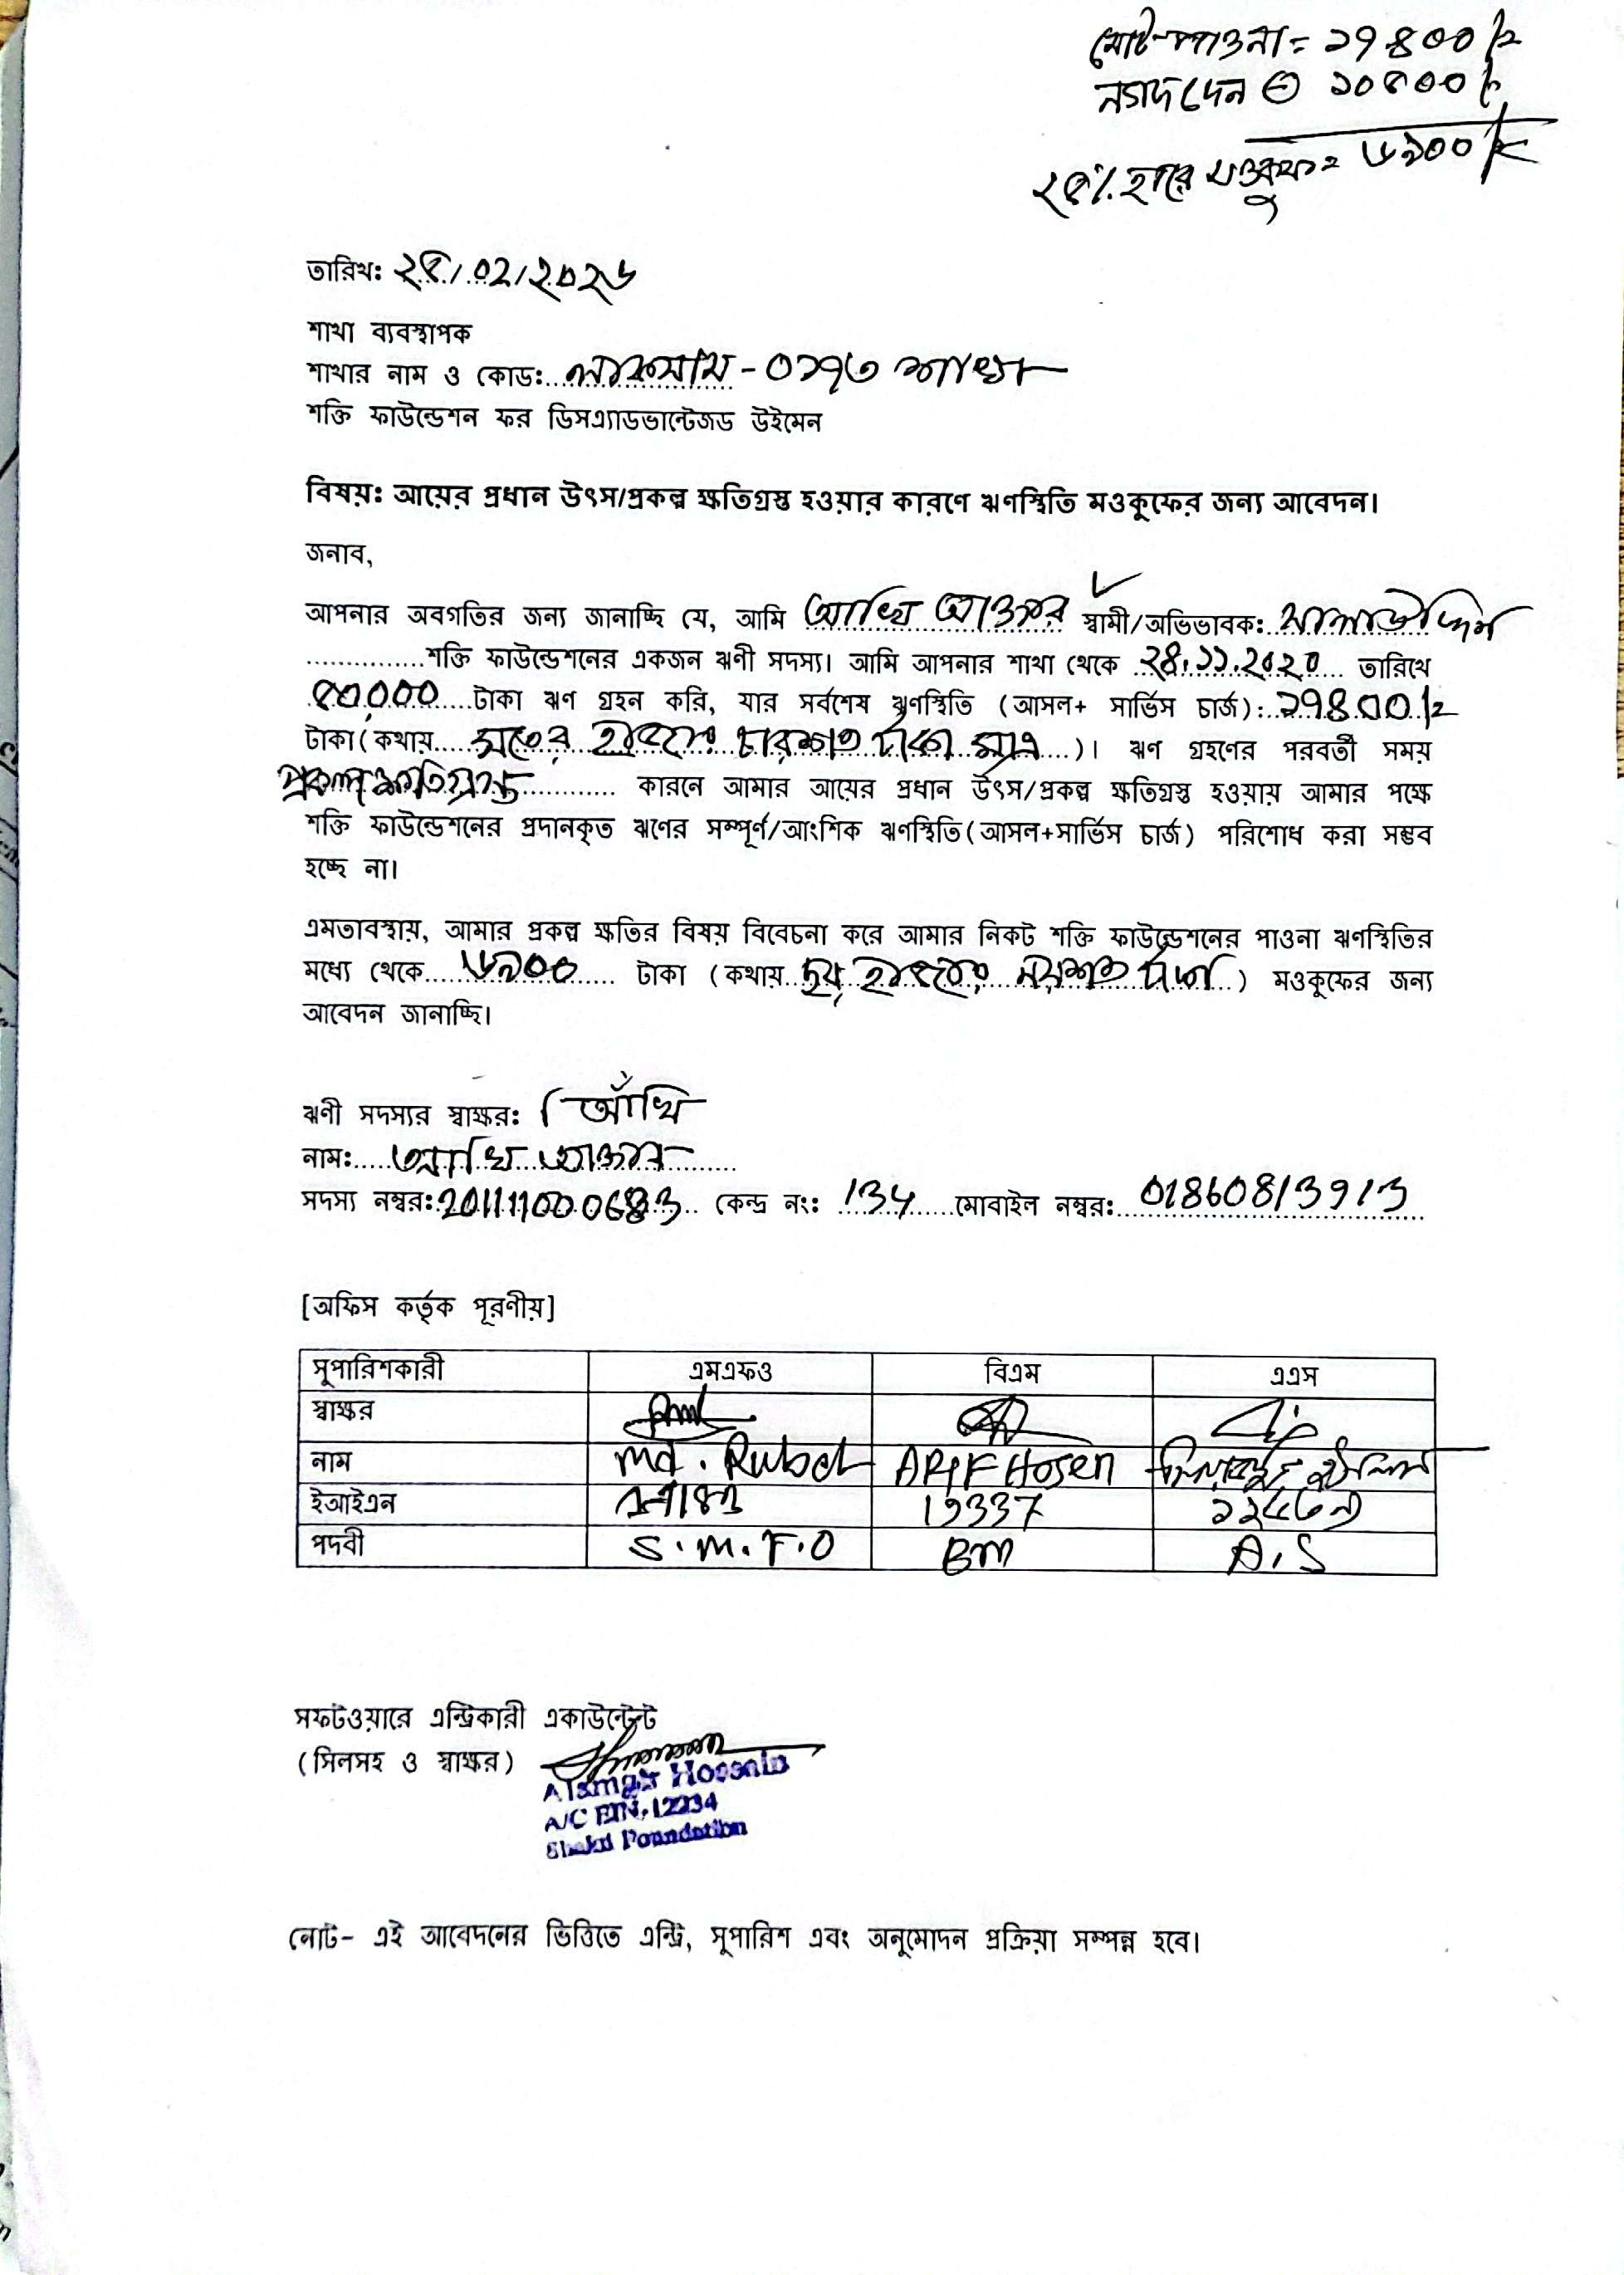 মোট পাওনা = ১৭৪০০/=
নগদ দেন ⊖ ১০৫০০/=
২৫% হারে মওকুফ = ৬৯০০/=
তারিখঃ ২৫/০২/২০২৬
শাখা ব্যবস্থাপক
শাখার নাম ও কোডঃ লাকসাম - ০১৭৩ শাখা
শক্তি ফাউন্ডেশন ফর ডিসএ্যাডভান্টেজড উইমেন
বিষয়ঃ আয়ের প্রধান উৎস/প্রকল্প ক্ষতিগ্রস্ত হওয়ার কারণে ঋণস্থিতি মওকুফের জন্য আবেদন।
জনাব,
আপনার অবগতির জন্য জানাচ্ছি যে, আমি আখি আক্তার স্বামী/অভিভাবকঃ সালাউদ্দিন
শক্তি ফাউন্ডেশনের একজন ঋণী সদস্য। আমি আপনার শাখা থেকে ২৪.১১.২০২০ তারিখে
৫০,০০০ টাকা ঋণ গ্রহন করি, যার সর্বশেষ ঋণস্থিতি (আসল+ সার্ভিস চার্জ)ঃ ১৭৪০০/=
টাকা(কথায় সতের হাজার চারশত টাকা মাত্র)। ঋণ গ্রহণের পরবর্তী সময়
প্রকল্প ক্ষতিগ্রস্ত কারনে আমার আয়ের প্রধান উৎস/প্রকল্প ক্ষতিগ্রস্ত হওয়ায় আমার পক্ষে
শক্তি ফাউন্ডেশনের প্রদানকৃত ঋণের সম্পূর্ণ/আংশিক ঋণস্থিতি(আসল+সার্ভিস চার্জ) পরিশোধ করা সম্ভব
হচ্ছে না।
এমতাবস্থায়, আমার প্রকল্প ক্ষতির বিষয় বিবেচনা করে আমার নিকট শক্তি ফাউন্ডেশনের পাওনা ঋণস্থিতির
মধ্যে থেকে ৬৯০০ টাকা (কথায় ছয় হাজার নয়শত টাকা) মওকুফের জন্য
আবেদন জানাচ্ছি।
ঋণী সদস্যর স্বাক্ষরঃ আঁখি
নামঃ আখি আক্তার
সদস্য নম্বরঃ 201111000683 কেন্দ্র নংঃ 134 মোবাইল নম্বরঃ 01860813913
[অফিস কর্তৃক পূরণীয়]
সুপারিশকারী এমএফও বিএম এএস
স্বাক্ষর
নাম Md. Rubel ARIF Hosen
ইআইএন 19337
পদবী S.M.F.O BM A.S
সফটওয়ারে এন্ট্রিকারী একাউন্টেন্ট
(সিলসহ ও স্বাক্ষর)
Alamgir Hossain
A/C EIN. 12234
Shakti Foundation
নোট- এই আবেদনের ভিত্তিতে এন্ট্রি, সুপারিশ এবং অনুমোদন প্রক্রিয়া সম্পন্ন হবে।